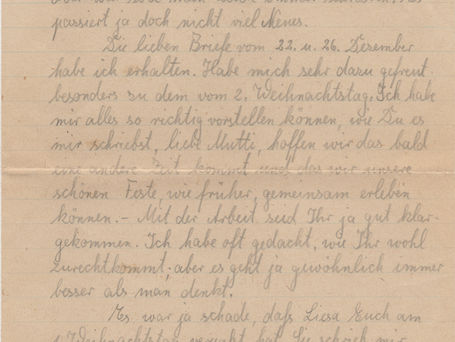 passiert ja doch nicht viel Neues.
Die lieben Briefe vom 22. u. 26. Dezember
habe ich erhalten. Habe mich sehr dazu gefreut
besonders zu dem vom 2. Weihnachtstag. Ich habe
mir alles so richtig vorstellen können, wie Du es
mir schriebst, liebe Mutti, hoffen wir das bald
eine andere Zeit kommt und das wir unsere
schönen Feste, wie früher, gemeinsam erleben
können. – Mit der Arbeit seid Ihr ja gut klar-
gekommen. Ich habe oft gedacht, wie Ihr wohl
zurechtkommt; aber es geht ja gewöhnlich immer
besser als man denkt.
Es war ja schade, daß Liesa Euch am
Weihnachtstag hat. Sie schrieb mir